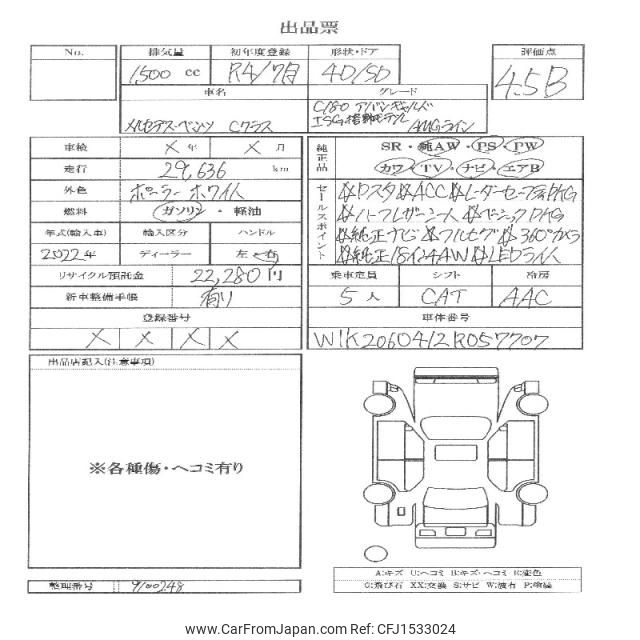 出品票
No.
排気量 初年度登録 形状・ドア 評価点
1500 cc R4/7月 4D/SD 4.5B
車名 グレード
メルセデス・ベンツ Cクラス
C180 アバンギャルド
ISG搭載モデル AMGライン
車検 × 年 × 月
走行 29,636 km
外色 ポーラーホワイト
燃料 ガソリン・軽油
年式(輸入車) 輸入区分 ハンドル
2022年 ディーラー 左・右
リサイクル預託金 22,280円
新車整備手帳 有り
登録番号
× × × ×
純正品
SR・純AW・PS・PW
カワ・TV・ナビ・エアB
セールスポイント
ACC レーダーセーフティPKG
ハーフレザーシート ベーシックPKG
純正ナビ フルセグ 360°カメラ
純正18インチAW LEDライト
乗車定員 シフト 冷房
5人 CAT AAC
車体番号
W1K2060412R057707
出品店記入(注意事項)
※各種傷・ヘコミ有り
整理番号 9100248
A:キズ U:ヘコミ B:キズ・ヘコミ E:変色
G:飛び石 XX:交換 S:サビ W:波有 P:塗傷
www.CarFromJapan.com - CFJ1533024